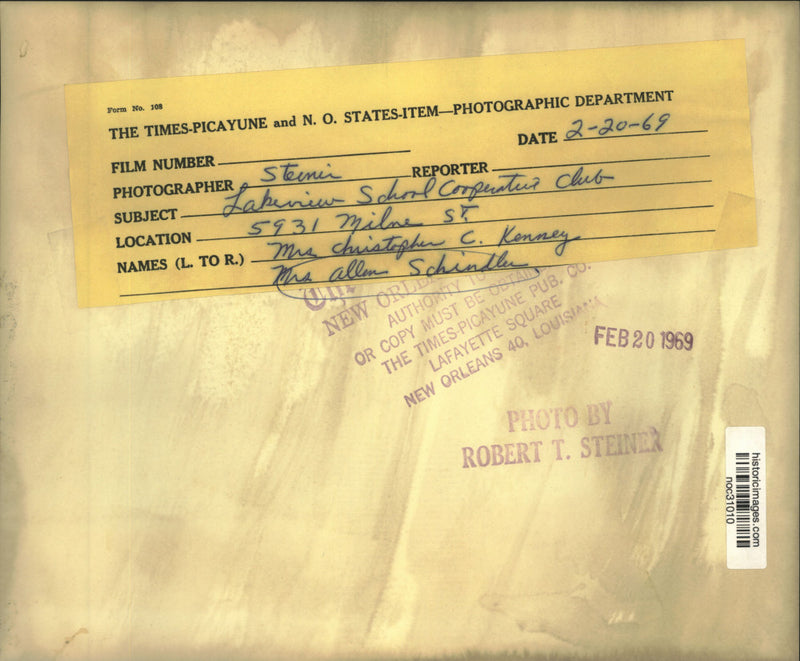 Form No. 108
THE TIMES-PICAYUNE and N. O. STATES-ITEM—PHOTOGRAPHIC DEPARTMENT
DATE 2-20-69
FILM NUMBER
PHOTOGRAPHER Steiner REPORTER
SUBJECT Lakeview School Cooperative Club
LOCATION 5931 Milne ST.
NAMES (L. TO R.) Mrs Christopher C. Kenney
Mrs Allen Schindler
NEW ORLE
AUTHORITY TO
OR COPY MUST BE OBTAI
THE TIMES-PICAYUNE PUB. CO.
LAFAYETTE SQUARE
NEW ORLEANS 40, LOUISIANA
FEB 20 1969
PHOTO BY
ROBERT T. STEINER
historicimages.com
noc31010